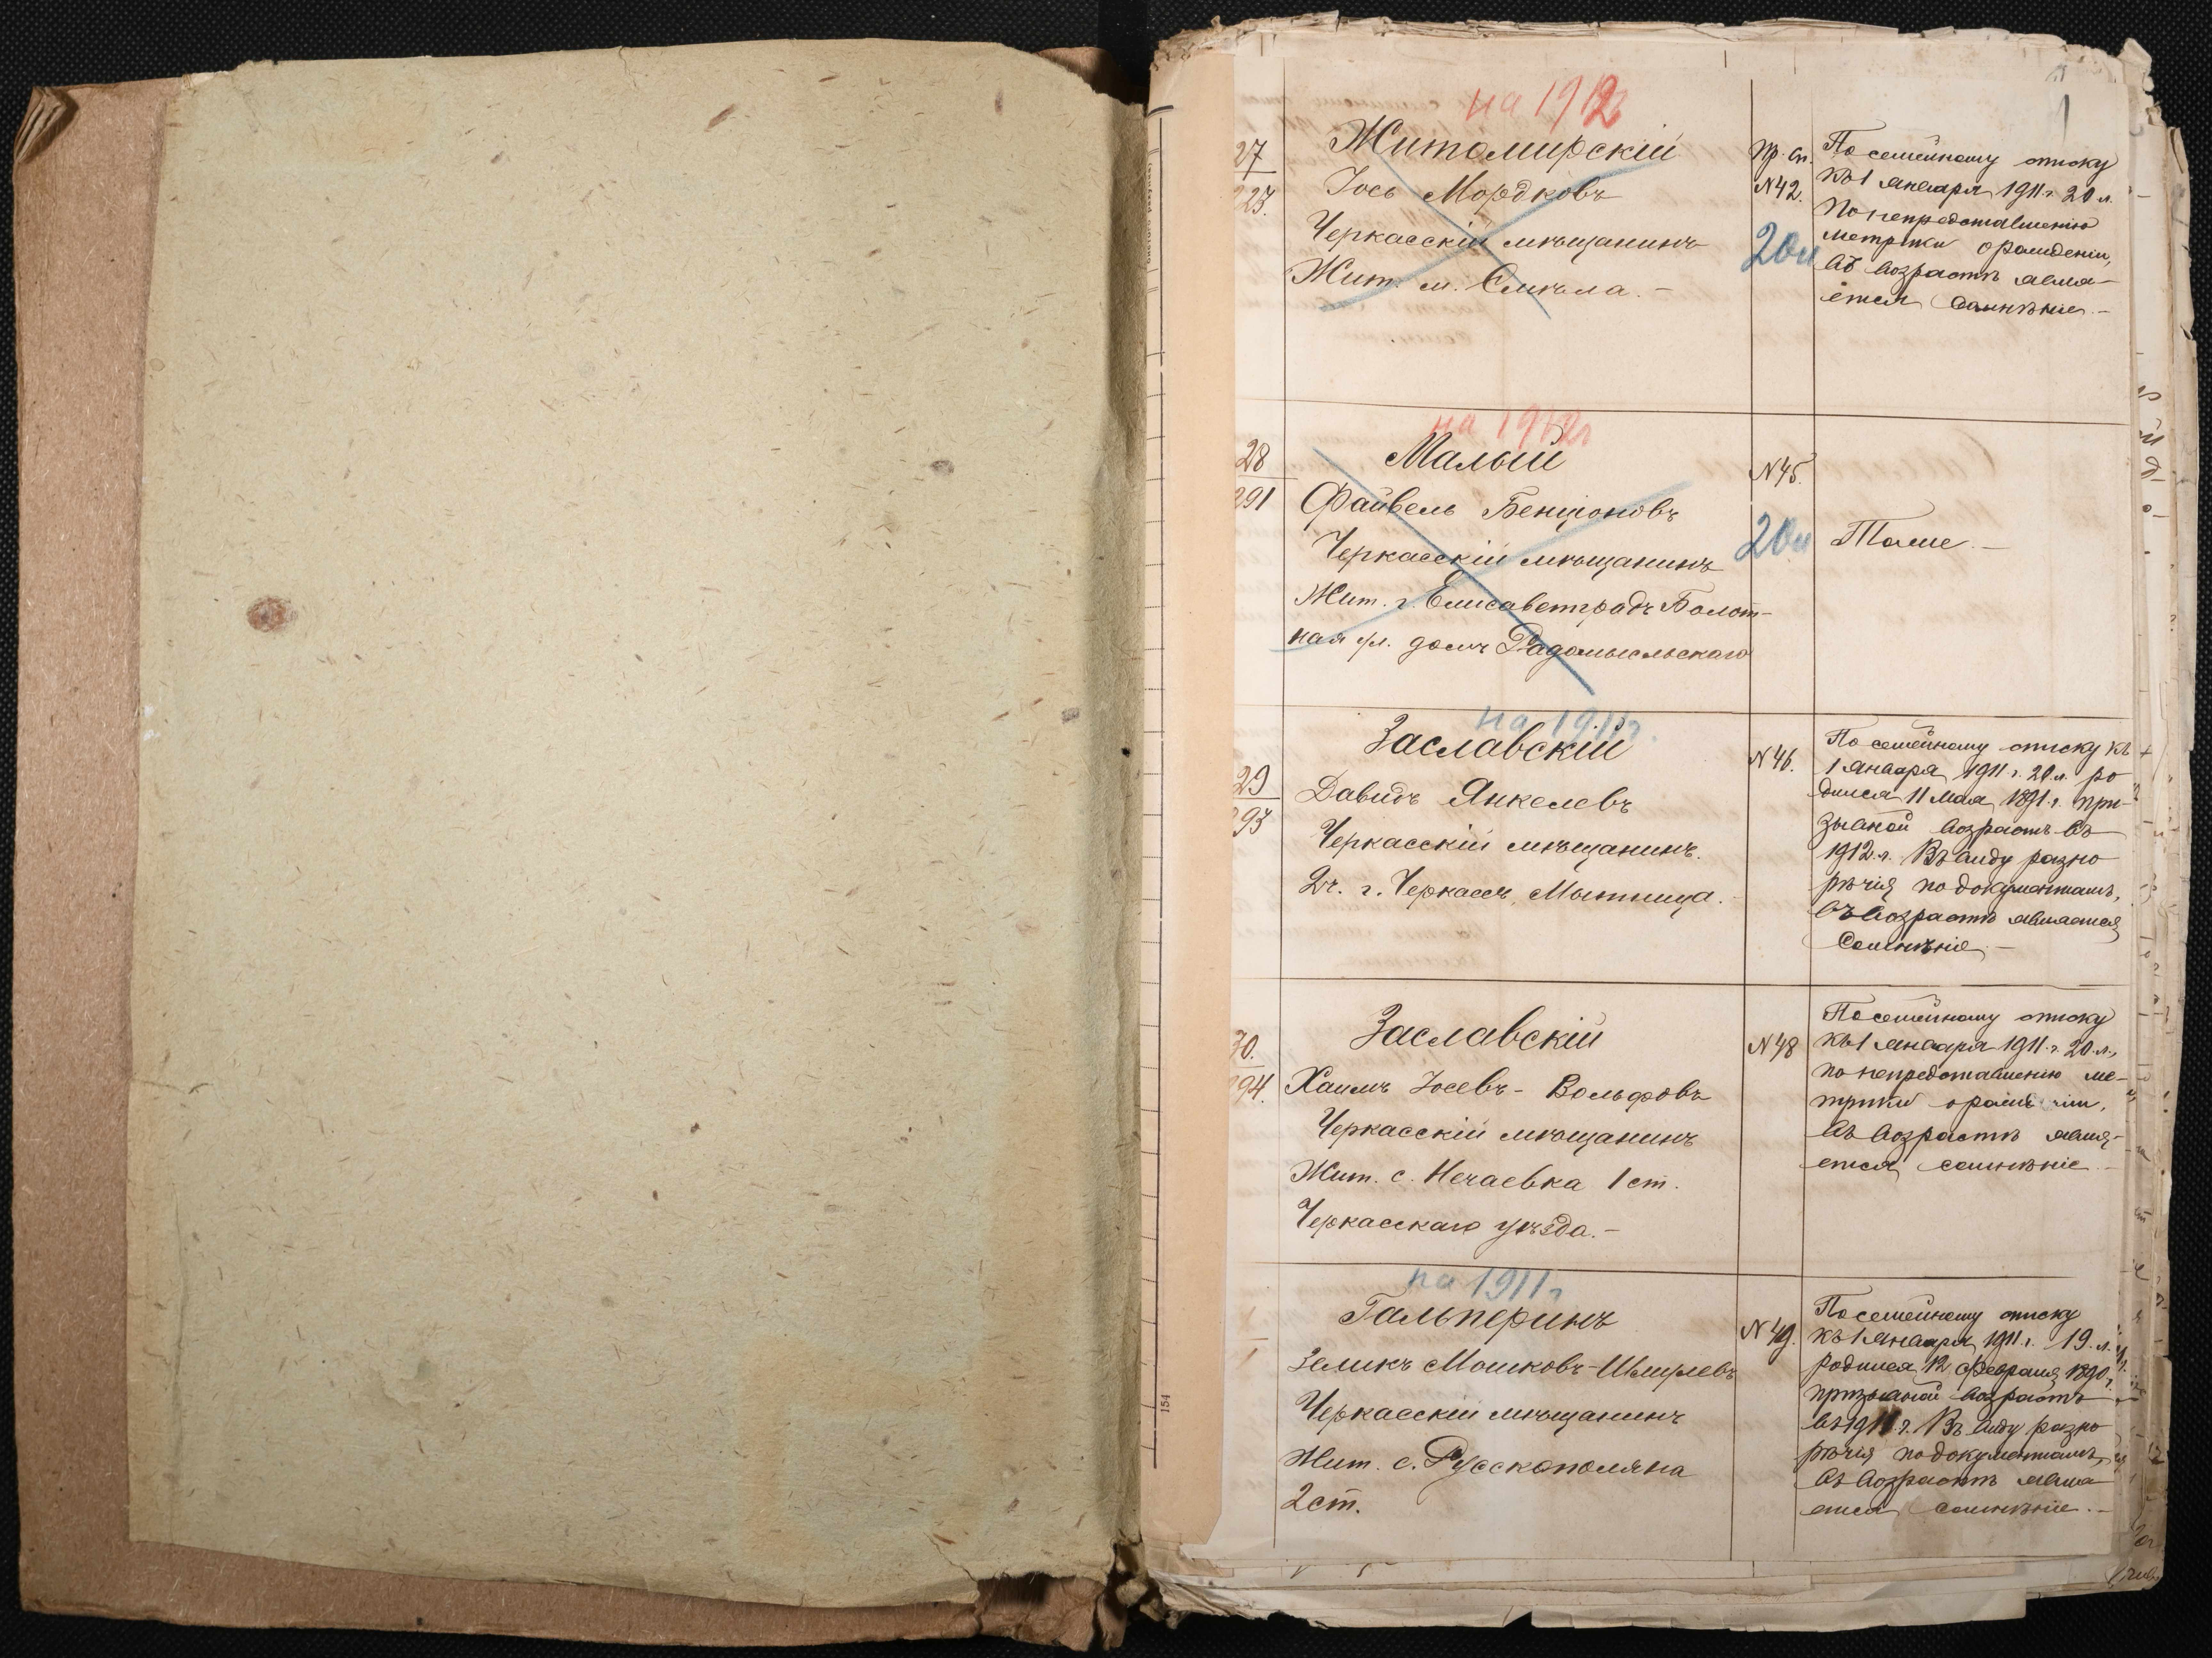 1
на 1912
27
223.
Житомирскій
Іось Мордковъ
Черкасскій мѣщанинъ
Жит. м. Смѣла. —
Пр. сп.
№42.
20 л
По семейному списку
къ 1 января 1911 г. 20 л.
По непредставленію
метрики о рожденіи,
въ возрастѣ явля-
ется сомнѣніе. —
на 1912 г
28
291
Малый
Файвель Бенціоновъ
Черкасскій мѣщанинъ
Жит. г. Елисаветградъ Болот-
ная ул. домъ Радомысльскаго
№45.
20 л
Тоже. —
на 1911 г.
29
293
Заславскій
Давидъ Янкелевъ
Черкасскій мѣщанинъ.
2 ч. г. Черкассъ, Мытница.
№46.
По семейному списку къ
1 января 1911 г. 20 л. ро
дился 11 Мая 1891 г. при-
зывной возрастъ въ
1912 г. Въ виду разно
рѣчія по документамъ,
въ возрастѣ является
сомнѣніе. —
30.
294.
Заславскій
Хаимъ Іосевъ - Вольфовъ
Черкасскій мѣщанинъ
Жит. с. Нечаевка 1 ст.
Черкасскаго уѣзда. —
№48
По семейному списку
къ 1 января 1911 г. 20 л.,
по непредставленію ме-
трики о рожд ніи,
въ возрастѣ явля-
ется сомнѣніе. —
на 1911 г
Гальперинъ
Зеликъ Мошковъ-Шмулевъ
Черкасскій мѣщанинъ
Жит. с. Русскополяна
2 ст.
№49.
По семейному списку
къ 1 января 1911 г. 19 л.
родился 12 февраля 1890 г.
призывной возрастъ
въ 1911 г. Въ виду разно
рѣчія по документамъ,
въ возрастѣ явля
ется сомнѣніе. —
154